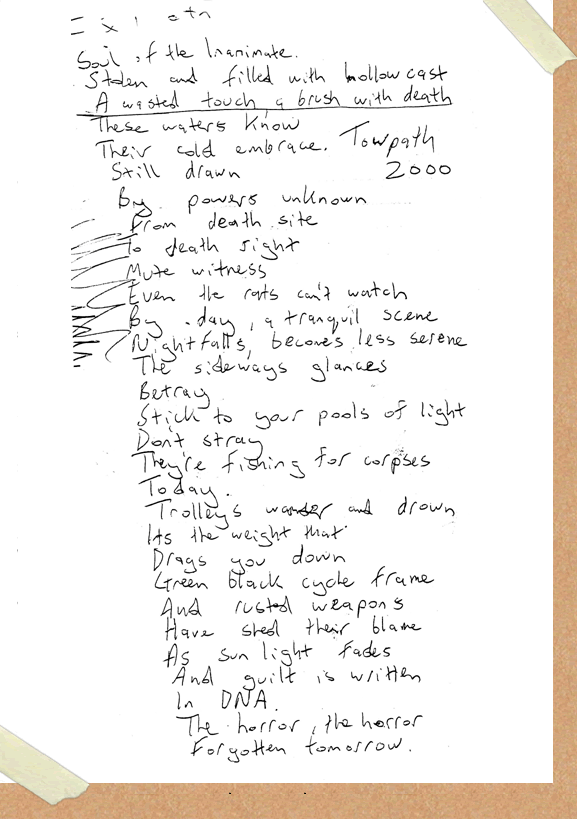 Soul of the Inanimate.
Stolen and filled with hollow cast
A wasted touch, a brush with death
These waters know
Their cold embrace. Towpath
Still drawn 2000
By powers unknown
From death site
To death sight
Mute witness
Even the rats can't watch
By day, a tranquil scene
Nightfalls, becomes less serene
The sideways glances
Betray
Stick to your pools of light
Don't stray
They're fishing for corpses
Today.
Trolleys wander and drown
Its the weight that
Drags you down
Green black cycle frame
And rusted weapons
Have shed their blame
As sun light fades
And guilt is written
In DNA.
The horror, the horror
Forgotten tomorrow.